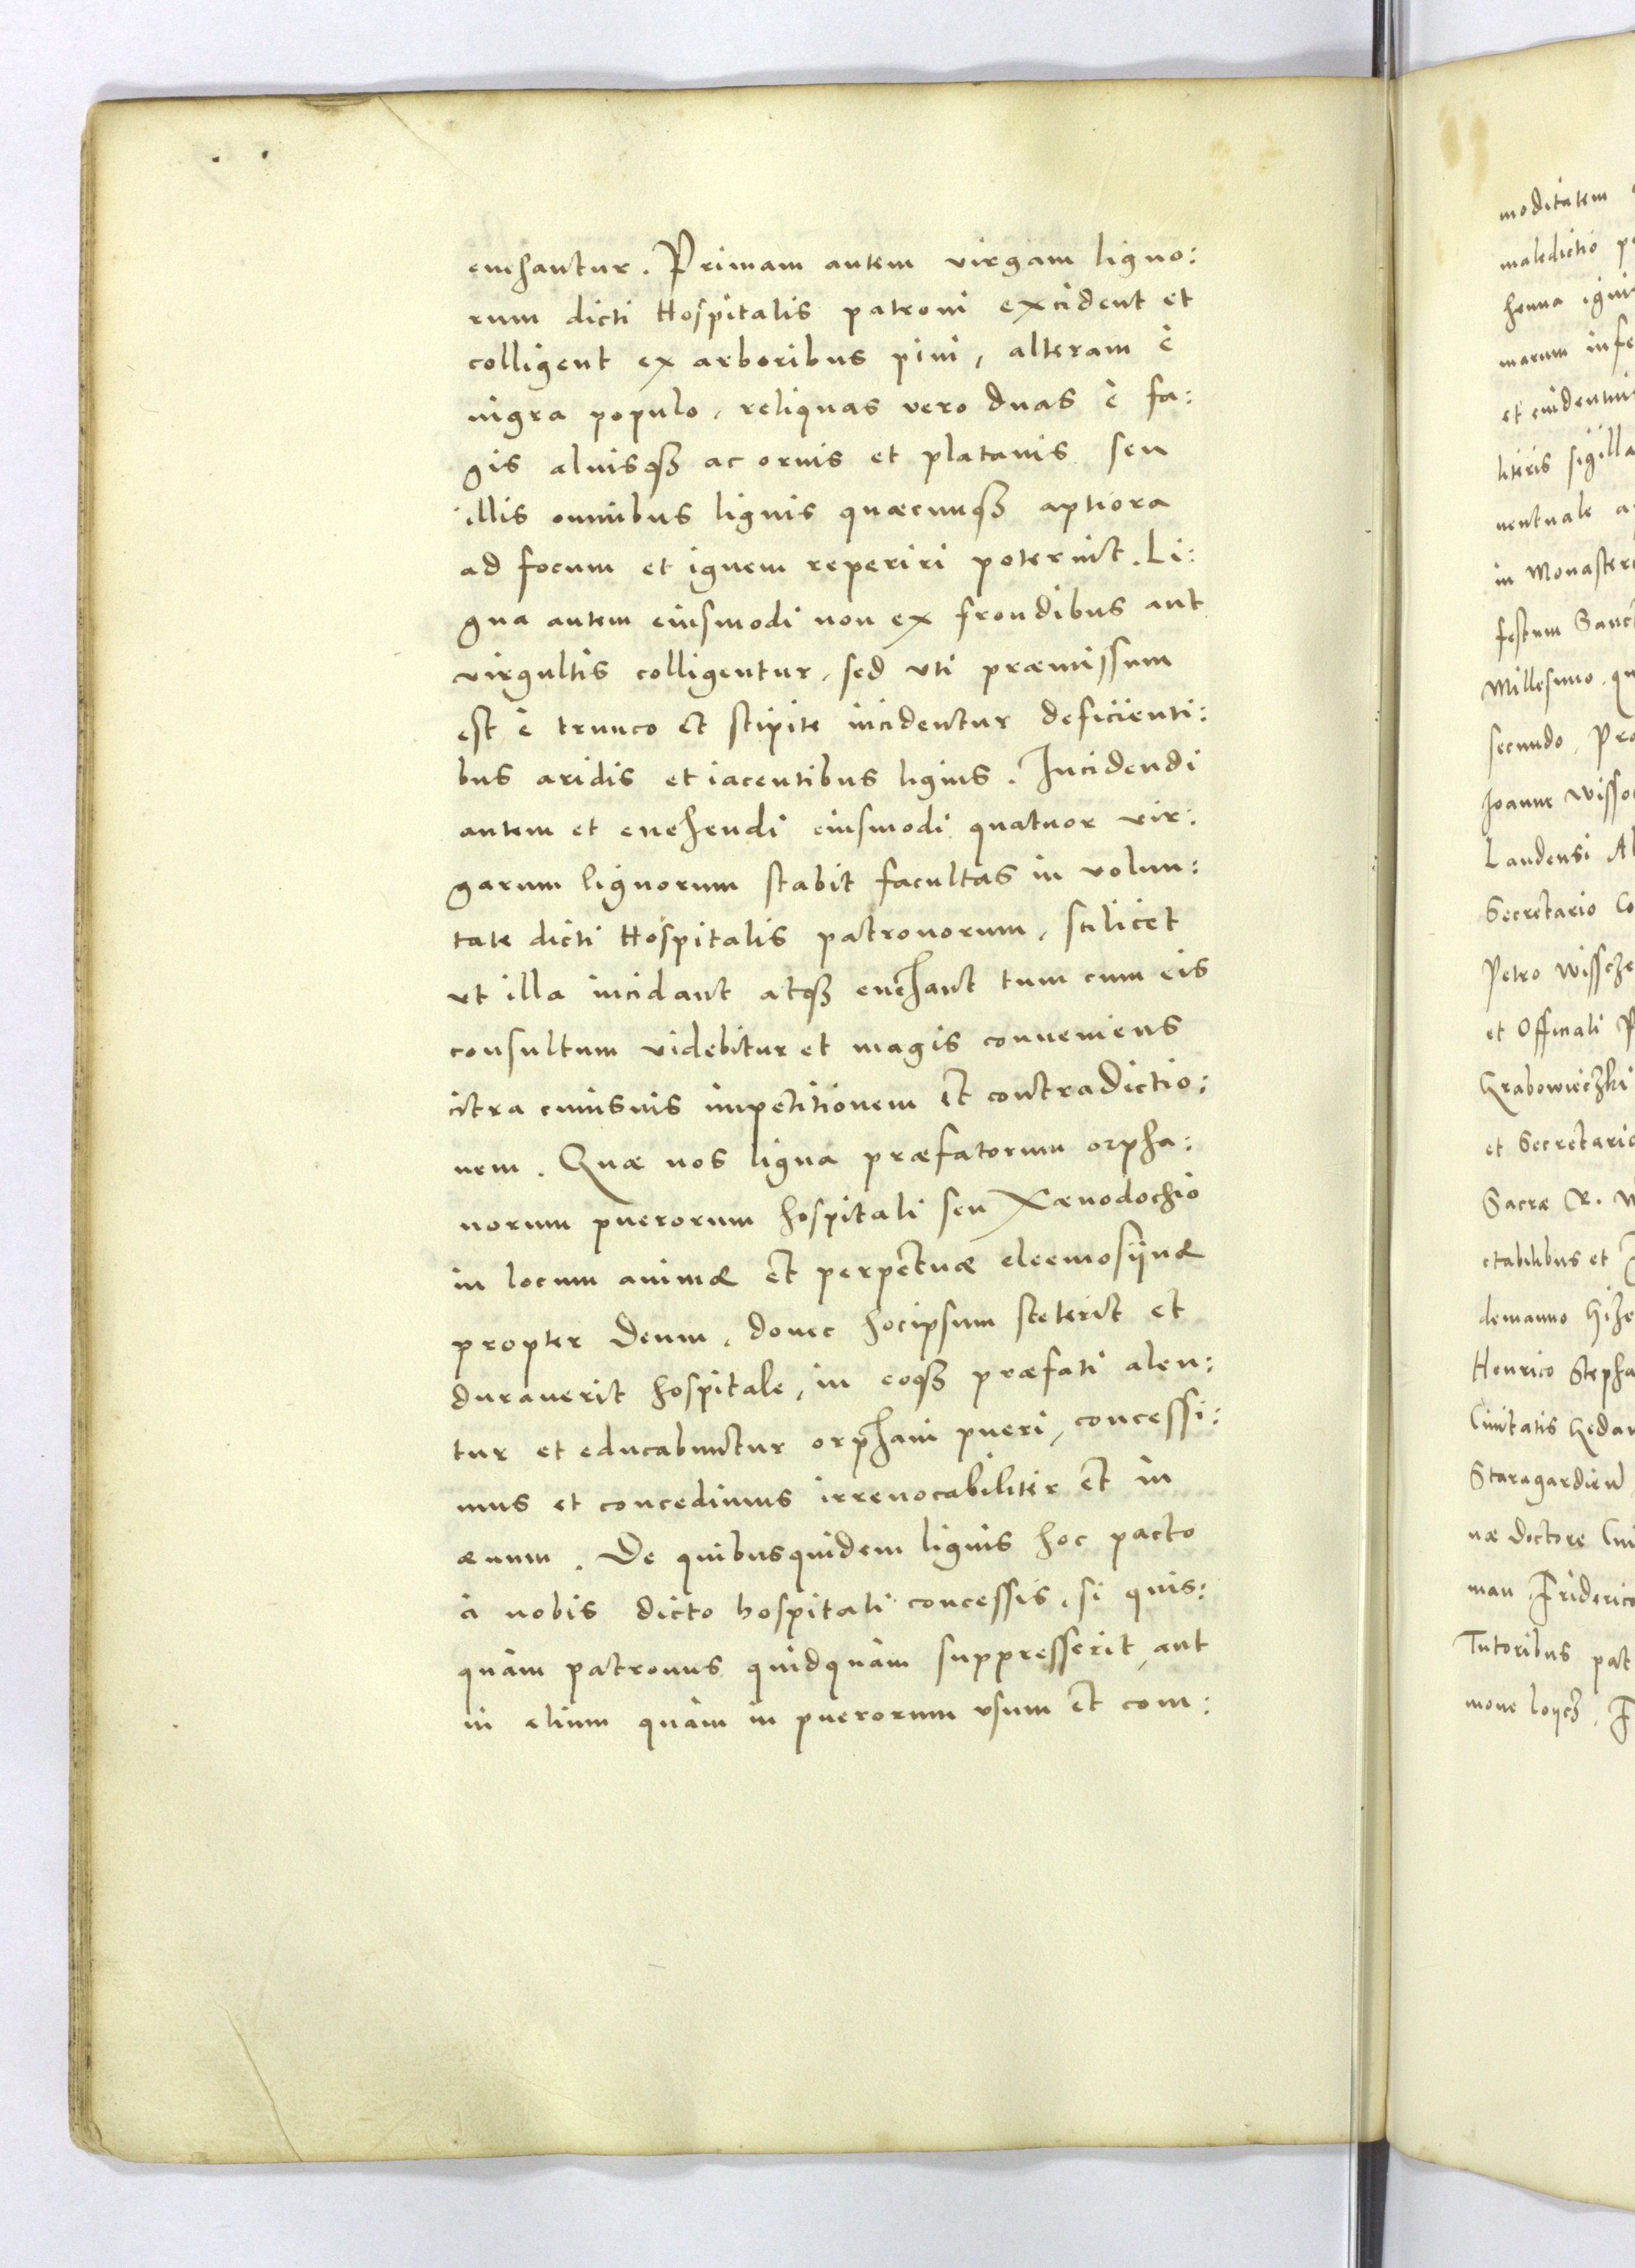 euehantur. Primam autem virgam ligno:
rum dicti Hospitalis patroni excident et
colligent ex arboribus pini, alteram è
nigra populo, reliquas vero duas è fa:
gis alnisqß ac ornis et platanis seu
illis omnibus lignis quæcunqß aptiora
ad focum et ignem reperiri poterint. Li:
gna autem eiusmodi non ex frondibus aut
virgultis colligentur, sed vti præmissum
est è trunco et stipite incidentur deficienti:
bus aridis et iacentibus lignis. Incidendi
autem et euehendi eiusmodi quatuor vir:
garum lignorum stabit facultas in volun:
tate dicti Hospitalis patronorum, scilicet
vt illa incidant atqß euehant tum cum eis
consultum videbitur et magis conueniens
citra cuiusuis impetitionem et contradictio:
nem. Quæ nos ligna præfatorum orpha:
norum puerorum hospitali seu Xænodochio
in locum animæ et perpetuæ eleemosijnæ
propter Deum, donec hocipsum steterit et
durauerit hospitale, in eoqß præfati alen:
tur et educabuntur orphani pueri, concessi:
mus et concedimus irreuocabiliter et in
æuum. De quibusquidem lignis hoc pacto
à nobis dicto hospitali concessis, si quis:
quàm patronus quidquàm suppresserit, aut
in alium quàm in puerorum vsum et com:
moditatem
maledictio
henna
marum
et
literis
nentuale
in
festum
Millesimo
secundo
Joanne
Landensi
Secretario
Petro
et Officiali
Grabowieczki
et
Sacræ R.
ctabilibus et
demanno
Henrico
Ciuitatis
Staragardien
næ doctore
man
Tutoribus
mone loijcz